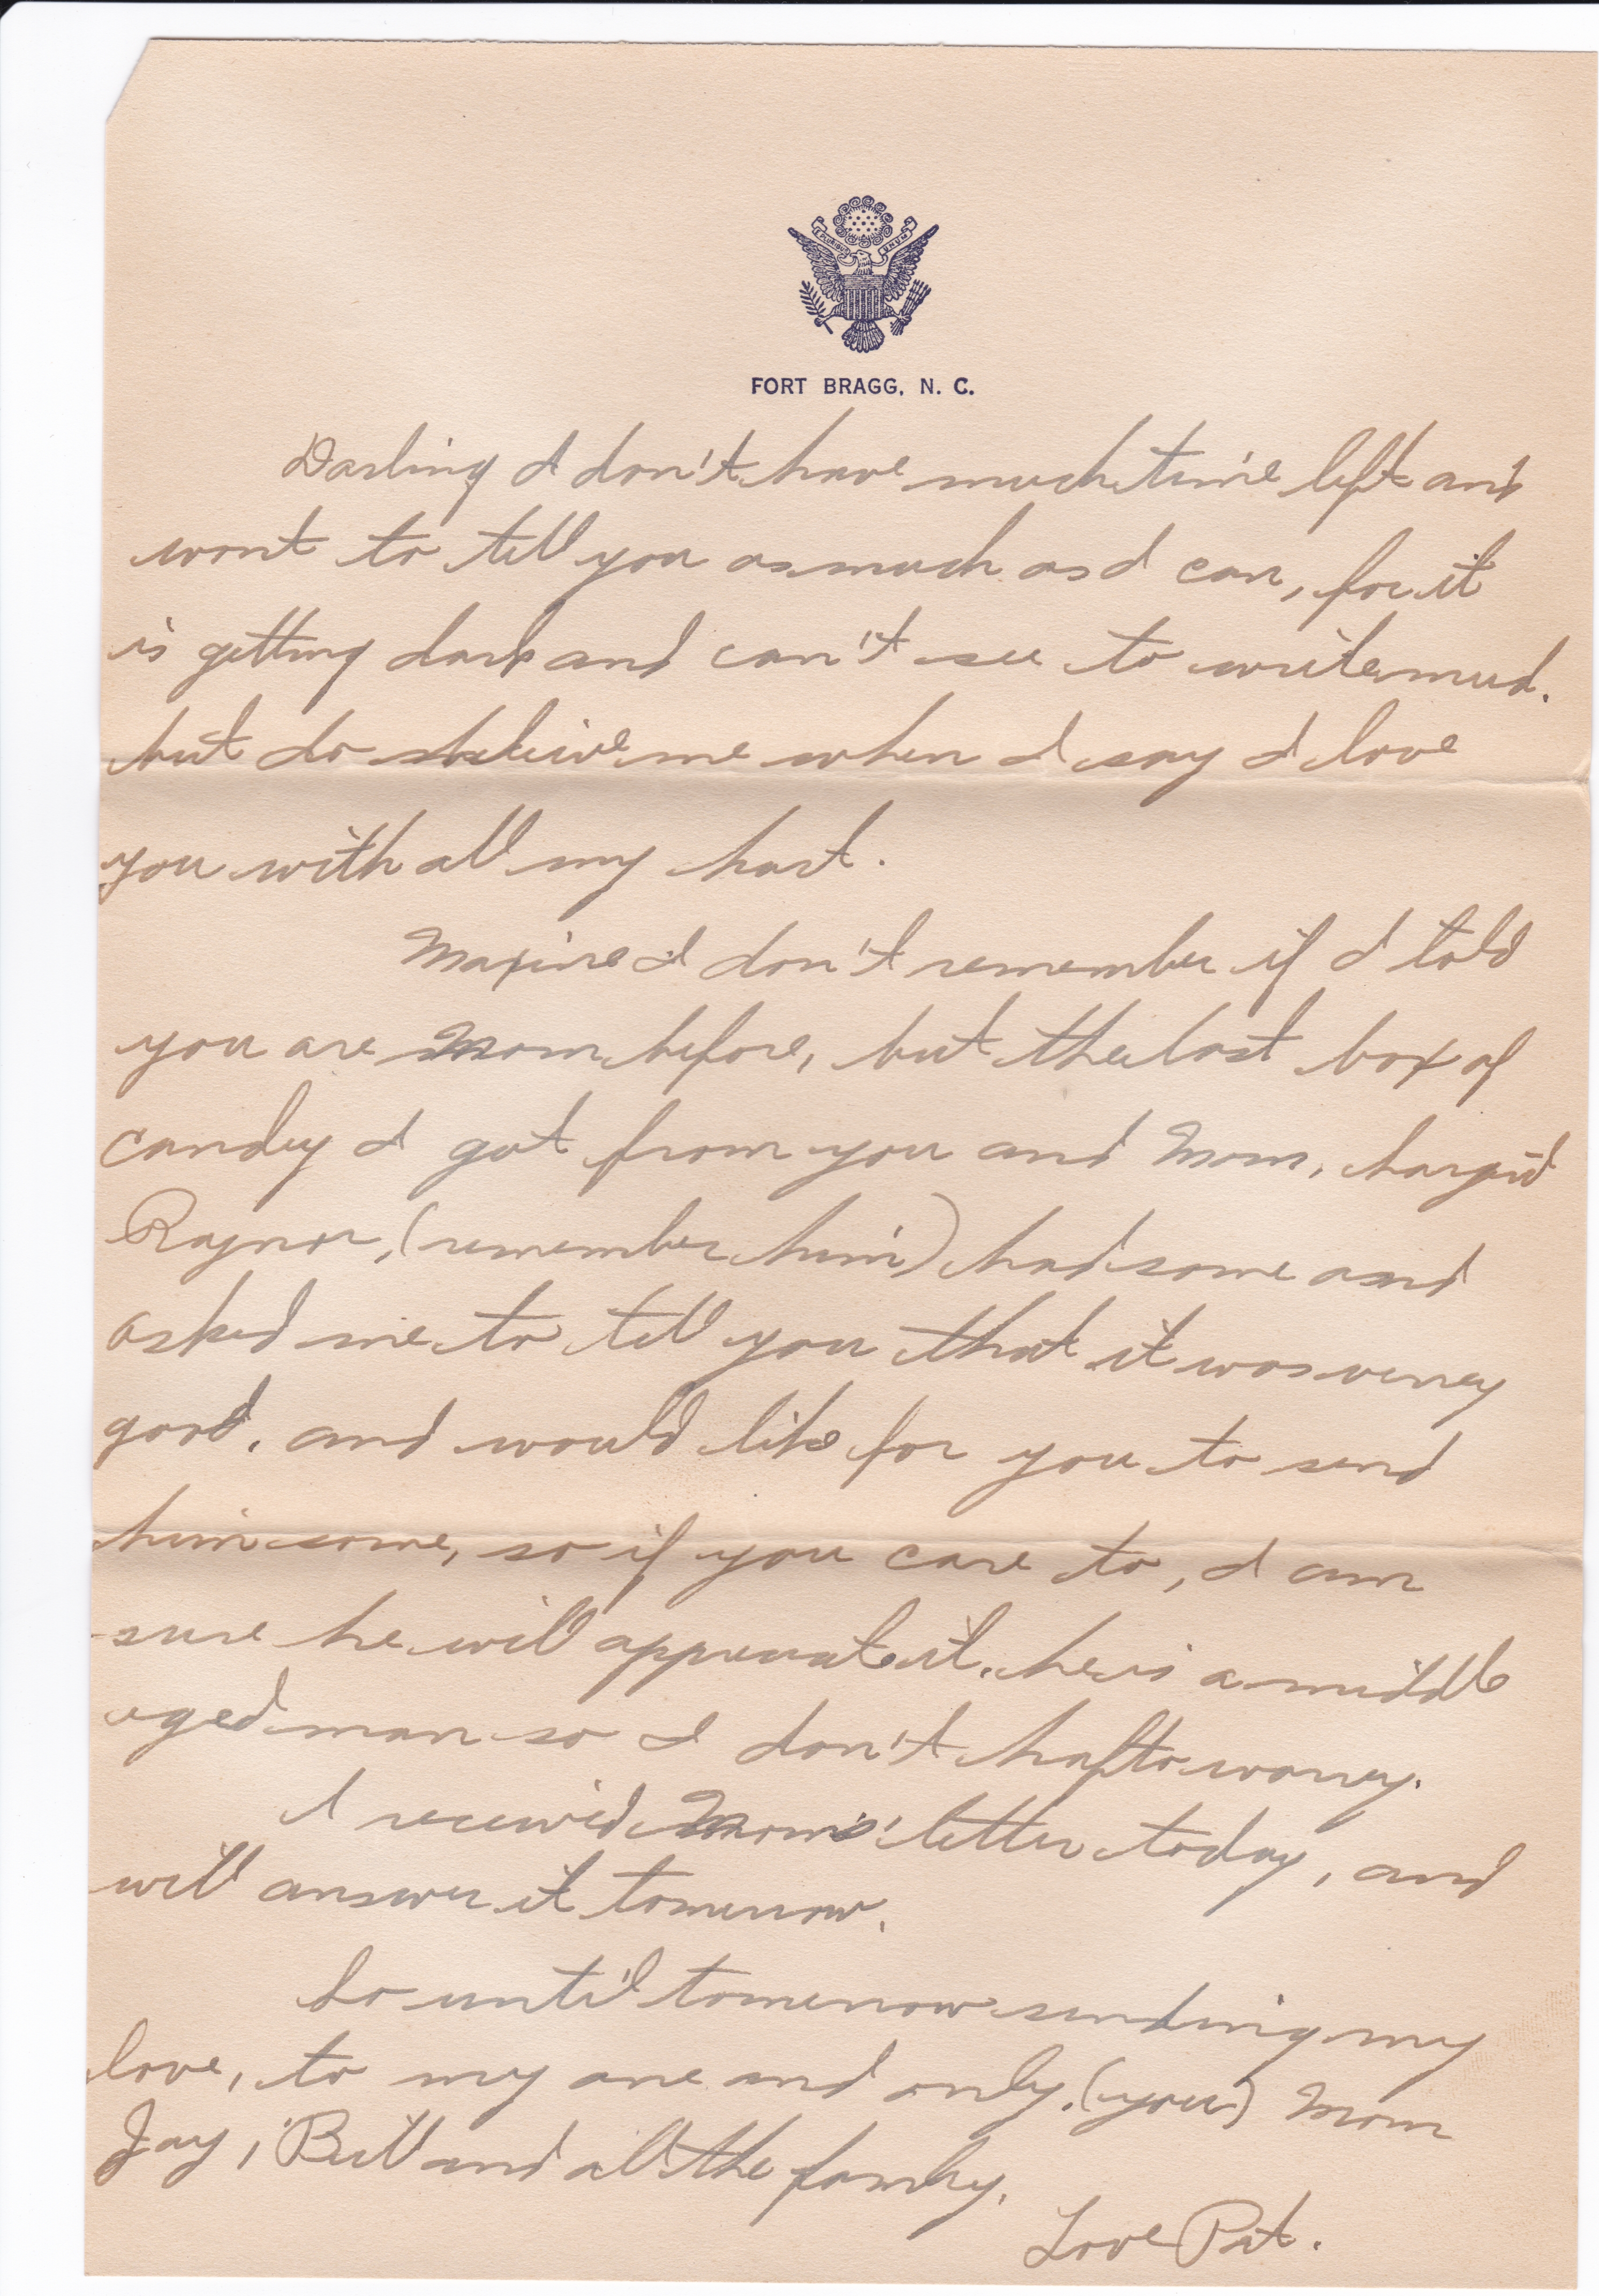 E PLURIBUS UNUM
FORT BRAGG, N. C.
Darling I don't have much time left and
want to tell you as much as I can, for it
is getting dark and can't see to write muc.
but do beleive me when I say I love
you with all my hart.
Maxine I don't remember if I told
you are Mom before, but the last box of
candy I got from you and Mom,
Raynor, (remember him) had some and
asked me to tell you that it was verrey
good. and would like for you to send
him some, so if you care to, I am
sure he will appreciate it. he is a middle
aged man so I don't hafto worrey.
I receivid Moms' letter today, and
will answer it tomerrow.
So until tomerrow sending my
love, to my one and only. (you) Mom
Jay, Bill and all the family.
Love Pat.